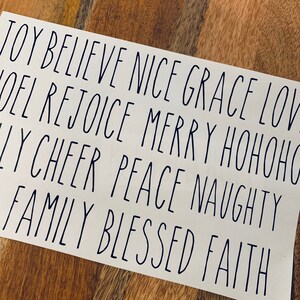 JOY BELIEVE NICE GRACE LOV
OEL REJOICE MERRY HOHOHO
LY CHEER PEACE NAUGHTY
FAMILY BLESSED FAITH